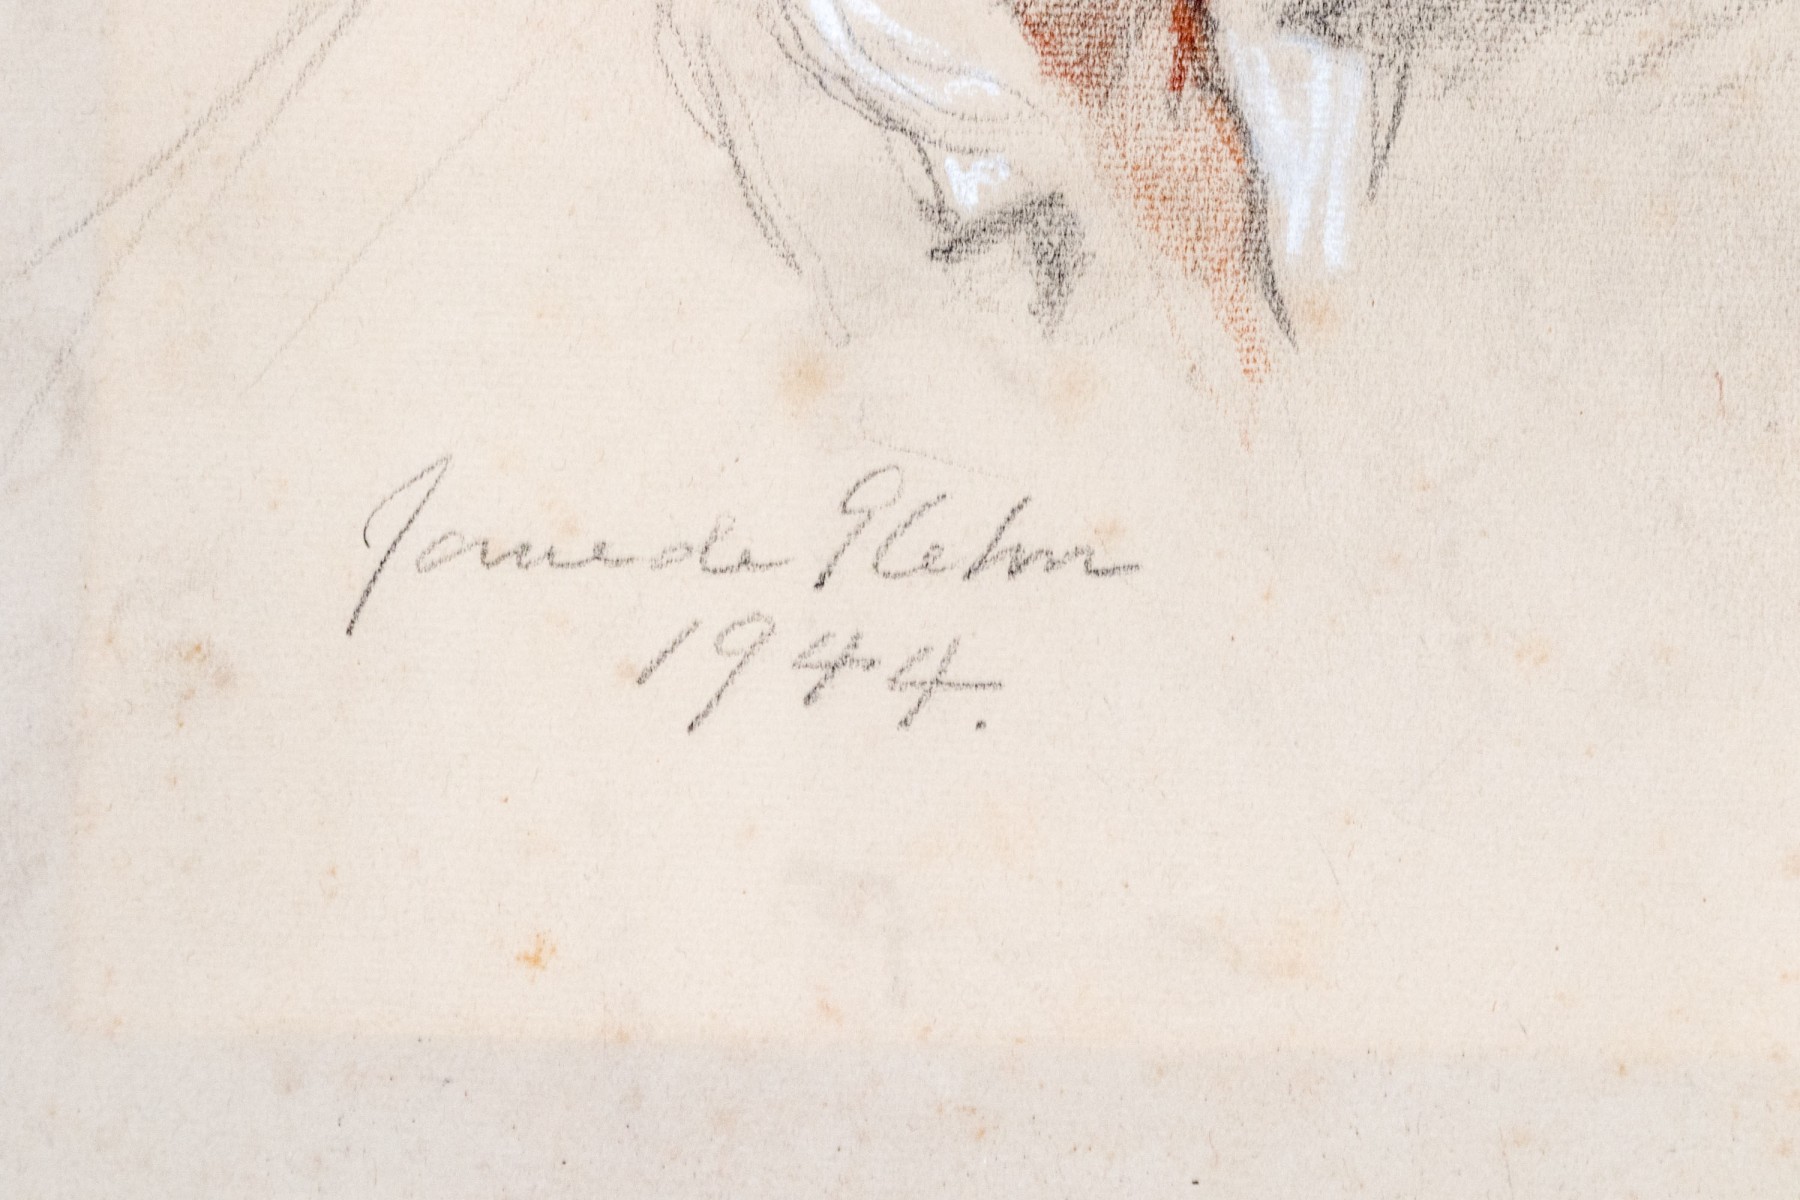 Jane de Glehn
1944.